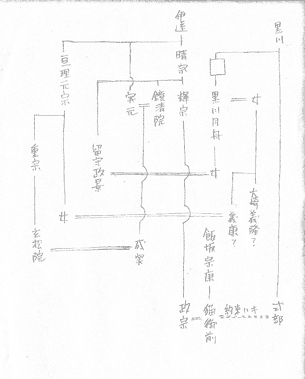 伊達
晴宗
黒川
亘理元宗
宗元
鏡清院
輝宗
黒川月舟
女
留守政景
女
重宗
女
義康?
大崎義隆?
飯坂宗康
玄松院
成実
政宗
猫御前
約束ハキ
式部